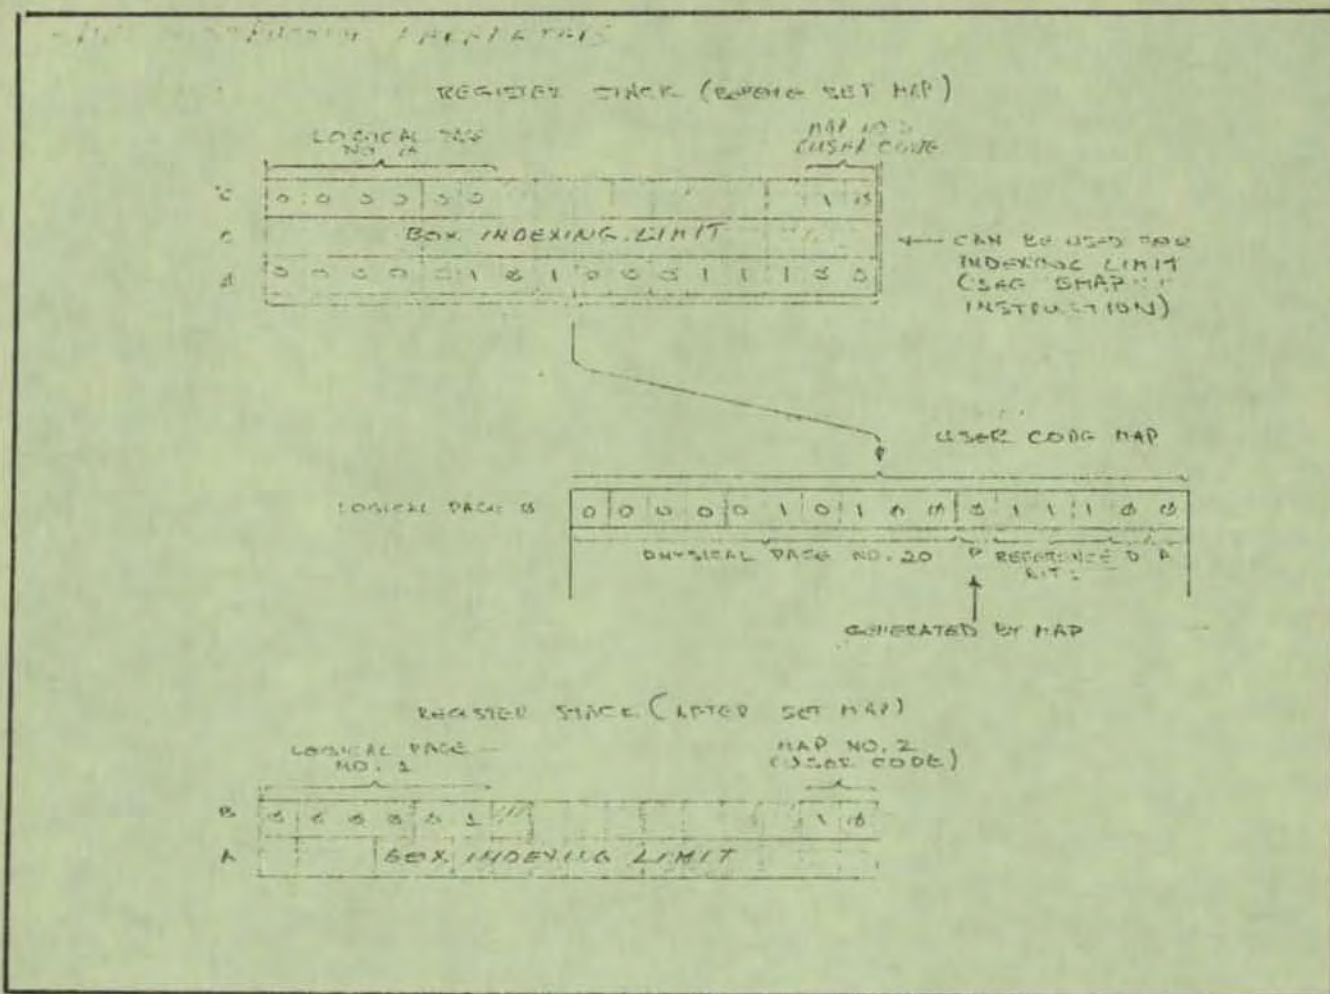 REGISTER STACK (BEFORE SET MAP)
LOGICAL PAGE
NO. 0
MAP NO 2
(USER CODE)
C 0 0 0 0 0 0 1 0
BOX INDEXING LIMIT
A 0 0 0 0 0 1 0 1 0 0 0 1 1 1 0 0
CAN BE USED FOR
INDEXING LIMIT
INSTRUCTION)
USER CODE MAP
LOGICAL PAGE 0
0 0 0 0 0 1 0 1 0 0 0 1 1 1 0 0
PHYSICAL PAGE NO. 20 P REFERENCE D A
BITS
GENERATED BY MAP
REGISTER STACK (AFTER SET MAP)
LOGICAL PAGE
NO. 1
MAP NO. 2
(USER CODE)
B 0 0 0 0 0 1 1 0
A BOX INDEXING LIMIT